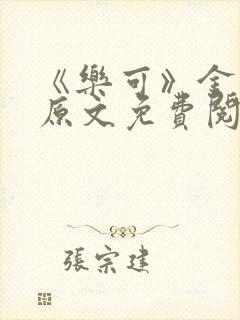 《樂可》全
原文免費閱
張宗建